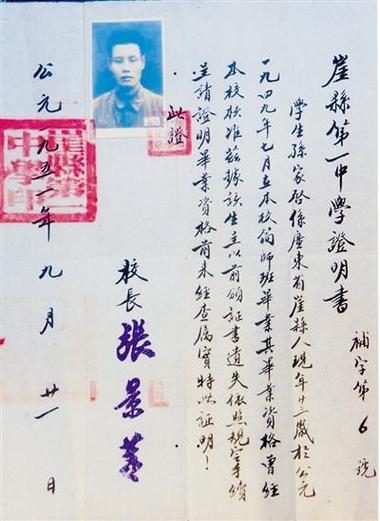 崖縣第一中學證明書
補字第6號
學生孫家啓係廣東省崖縣人現年廿三歲於公元
一九四九年七月在本校簡師班畢業其畢業資格曾經
本校核准茲據該生呈以前領証書遺失依照規定手續
呈請證明畢業資格前来經查屬實特以証明！
此證
校長 張景
公元一九五一年九月廿一日
崖縣第一
中學印